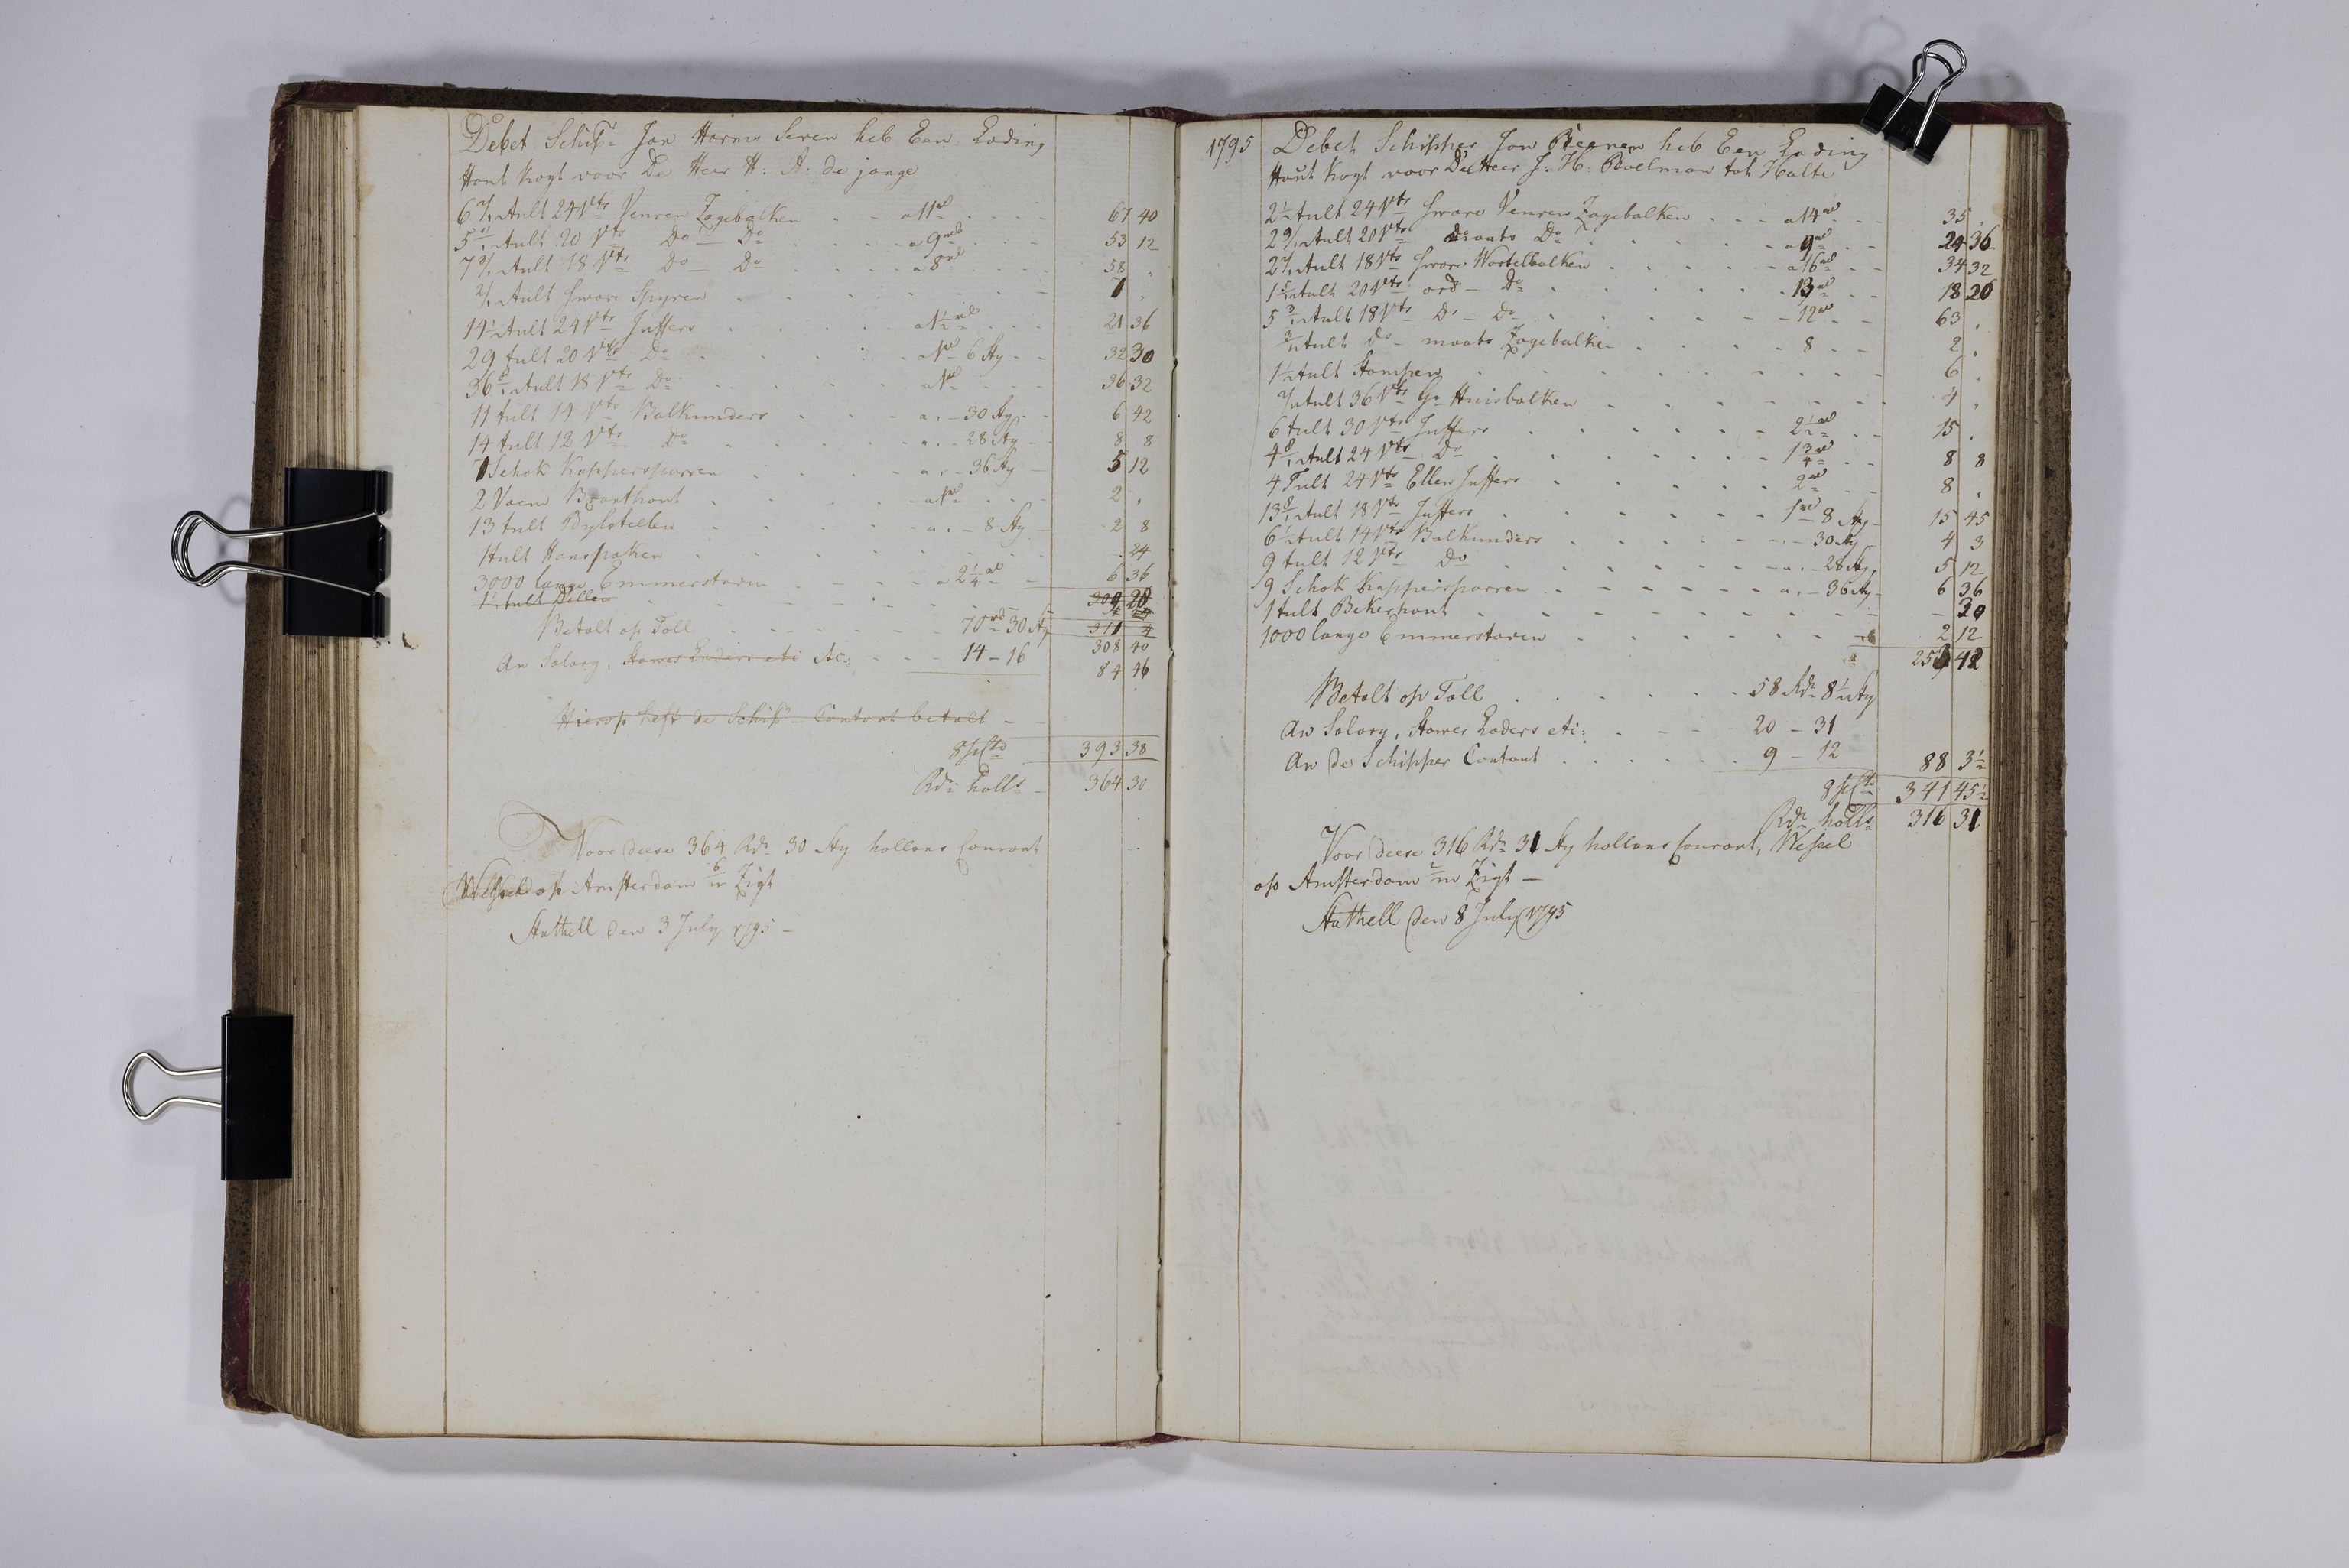 Debet Schipr Jan Harms Seven heb Een Lading
Hout Kogt voor De Heer H: A: de jonge
6 2/1 tult 24 Vts Venren Zagebalken a 11 rd 67 40
5 11/1 tult 20 Vts Do Do a 9 rd 53 12
7 3/1 tult 18 Vts Do Do a 8 rd 58 "
2/1 tult sware Spyren 1 "
14 1/2 tult 24 Vts Juffers a 1 1/2 rd 21 36
29 tult 20 Vts Do a 1 rd 6 Sty 32 30
36 8/1 tult 18 Vts Do a 1 rd 36 32
11 tult 14 Vts Balkunders a " - 30 Sty 6 42
14 tult 12 Vts Do a " - 28 Sty 8 8
7 Schok Kappersparren a " - 36 Sty 5 12
2 Vaem Branthout a 1 rd 2 "
13 tult Bylstellen a " - 8 Sty 2 8
1 tult Hanspaken 24
3000 lange Emmerstaven a 2 1/4 rd 6 36
1 1/2 tult Dellen
309 28
Betalt op Toll 70 rd 30 Sty 311 4
308 40
An Salary, Stower Laders etc etc: 14 - 16 84 46
Hierop heft de Schipr Contant betalt
8 pCto 393 38
Rdr holls 364 30
Voor deese 364 Rdr 30 Sty hollans Courant
Wessel op Amsterdam 6/m Zigt
Stathell den 3 July 1795
1795 Debet Schipper Jan Beenen heb Een Lading
Hout Kogt voor De Heer J: H: Povelman tot Halte
2 1/2 tult 24 Vts sware Venren Zagebalken a 14 rd 35 "
2 9/1 tult 20 Vts maats Do a 9 rd 24 36
2 2/1 tult 18 Vts sware Wortelbalken a 16 rd 34 32
1 5/1 tult 20 Vts ord Do 13 rd 18 20
5 3/1 tult 18 Vts Do Do 12 rd 63 "
3/1 tult Do maats Zagebalken 8 2 "
1 1/2 tult Stampen 6 "
2/1 tult 36 Vts Gr Huisbalken 4 "
6 tult 30 Vts Juffers 2 1/2 rd 15 "
4 8/1 tult 24 Vts Do 1 3/4 rd 8 8
4 Tult 24 Vts Ellen Juffers 2 rd 8 "
13 8/1 tult 18 Vts Juffers 1 rd 8 Sty 15 45
6 1/2 tult 14 Vts Balkunders " - 30 Sty 4 3
9 tult 12 Vts Do a " - 28 Sty 5 12
9 Schok Kappersparren a " - 36 Sty 6 36
1 tult Bekerhout 30
1000 lange Emmerstaven 2 12
253 42
Betalt op Toll 58 Rdr 8 1/2 Sty
An Salary, Stower Laders etc: 20 - 31
An de Schipper Contant 9 - 12 88 3 1/2
8 pCto 341 45 1/2
Rdr holls 316 31
Voor deese 316 Rdr 31 Sty hollans Courant, Wessel
op Amsterdam 2/m Zigt
Stathell den 8 July 1795